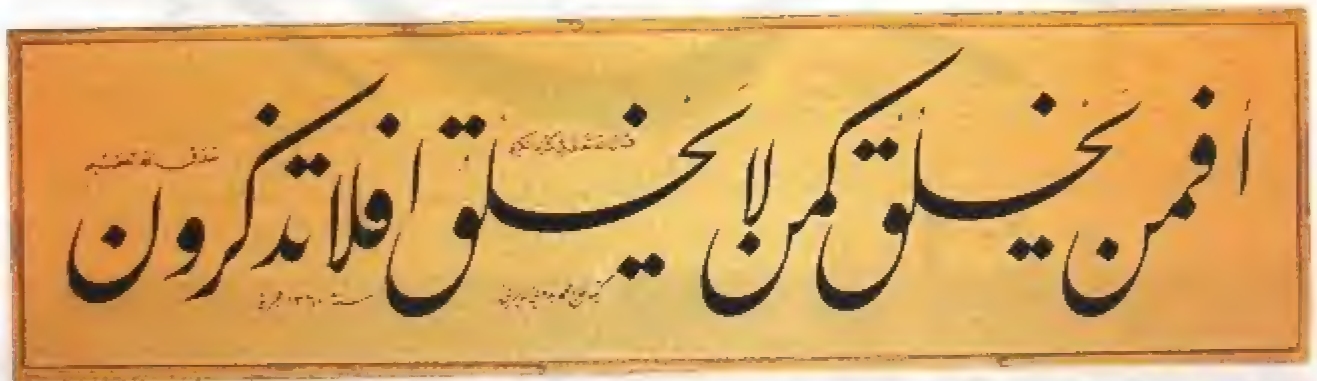 افمن يخلق كمن لا يخلق افلا تذكرون
صدق الله العظيم
سنة ١٣٦٠ هجرية